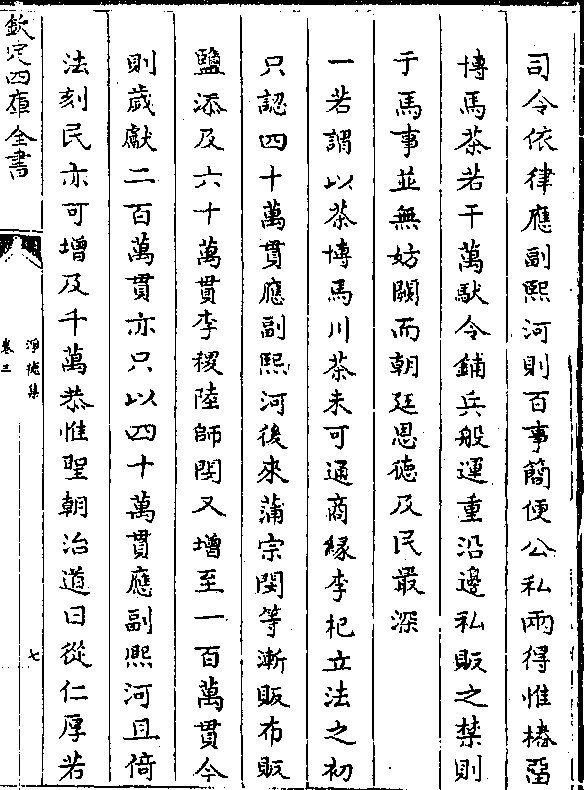 司令依律應副熙河則百事簡便公私兩得惟樁留
博馬茶若干萬馱令鋪兵般運重沿邊私販之禁則
于馬事並無妨闕而朝廷恩德及民最深
一若謂以茶博馬川茶未可通商緣李杞立法之初
只認四十萬貫應副熙河後來蒲宗閔等漸販布販
鹽添及六十萬貫李稷陸師閔又增至一百萬貫今
則歲獻二百萬貫亦只以四十萬貫應副熙河且倚
法刻民亦可增及千萬恭惟聖朝治道日從仁厚若
欽定四庫全書
淨德集
卷三
七